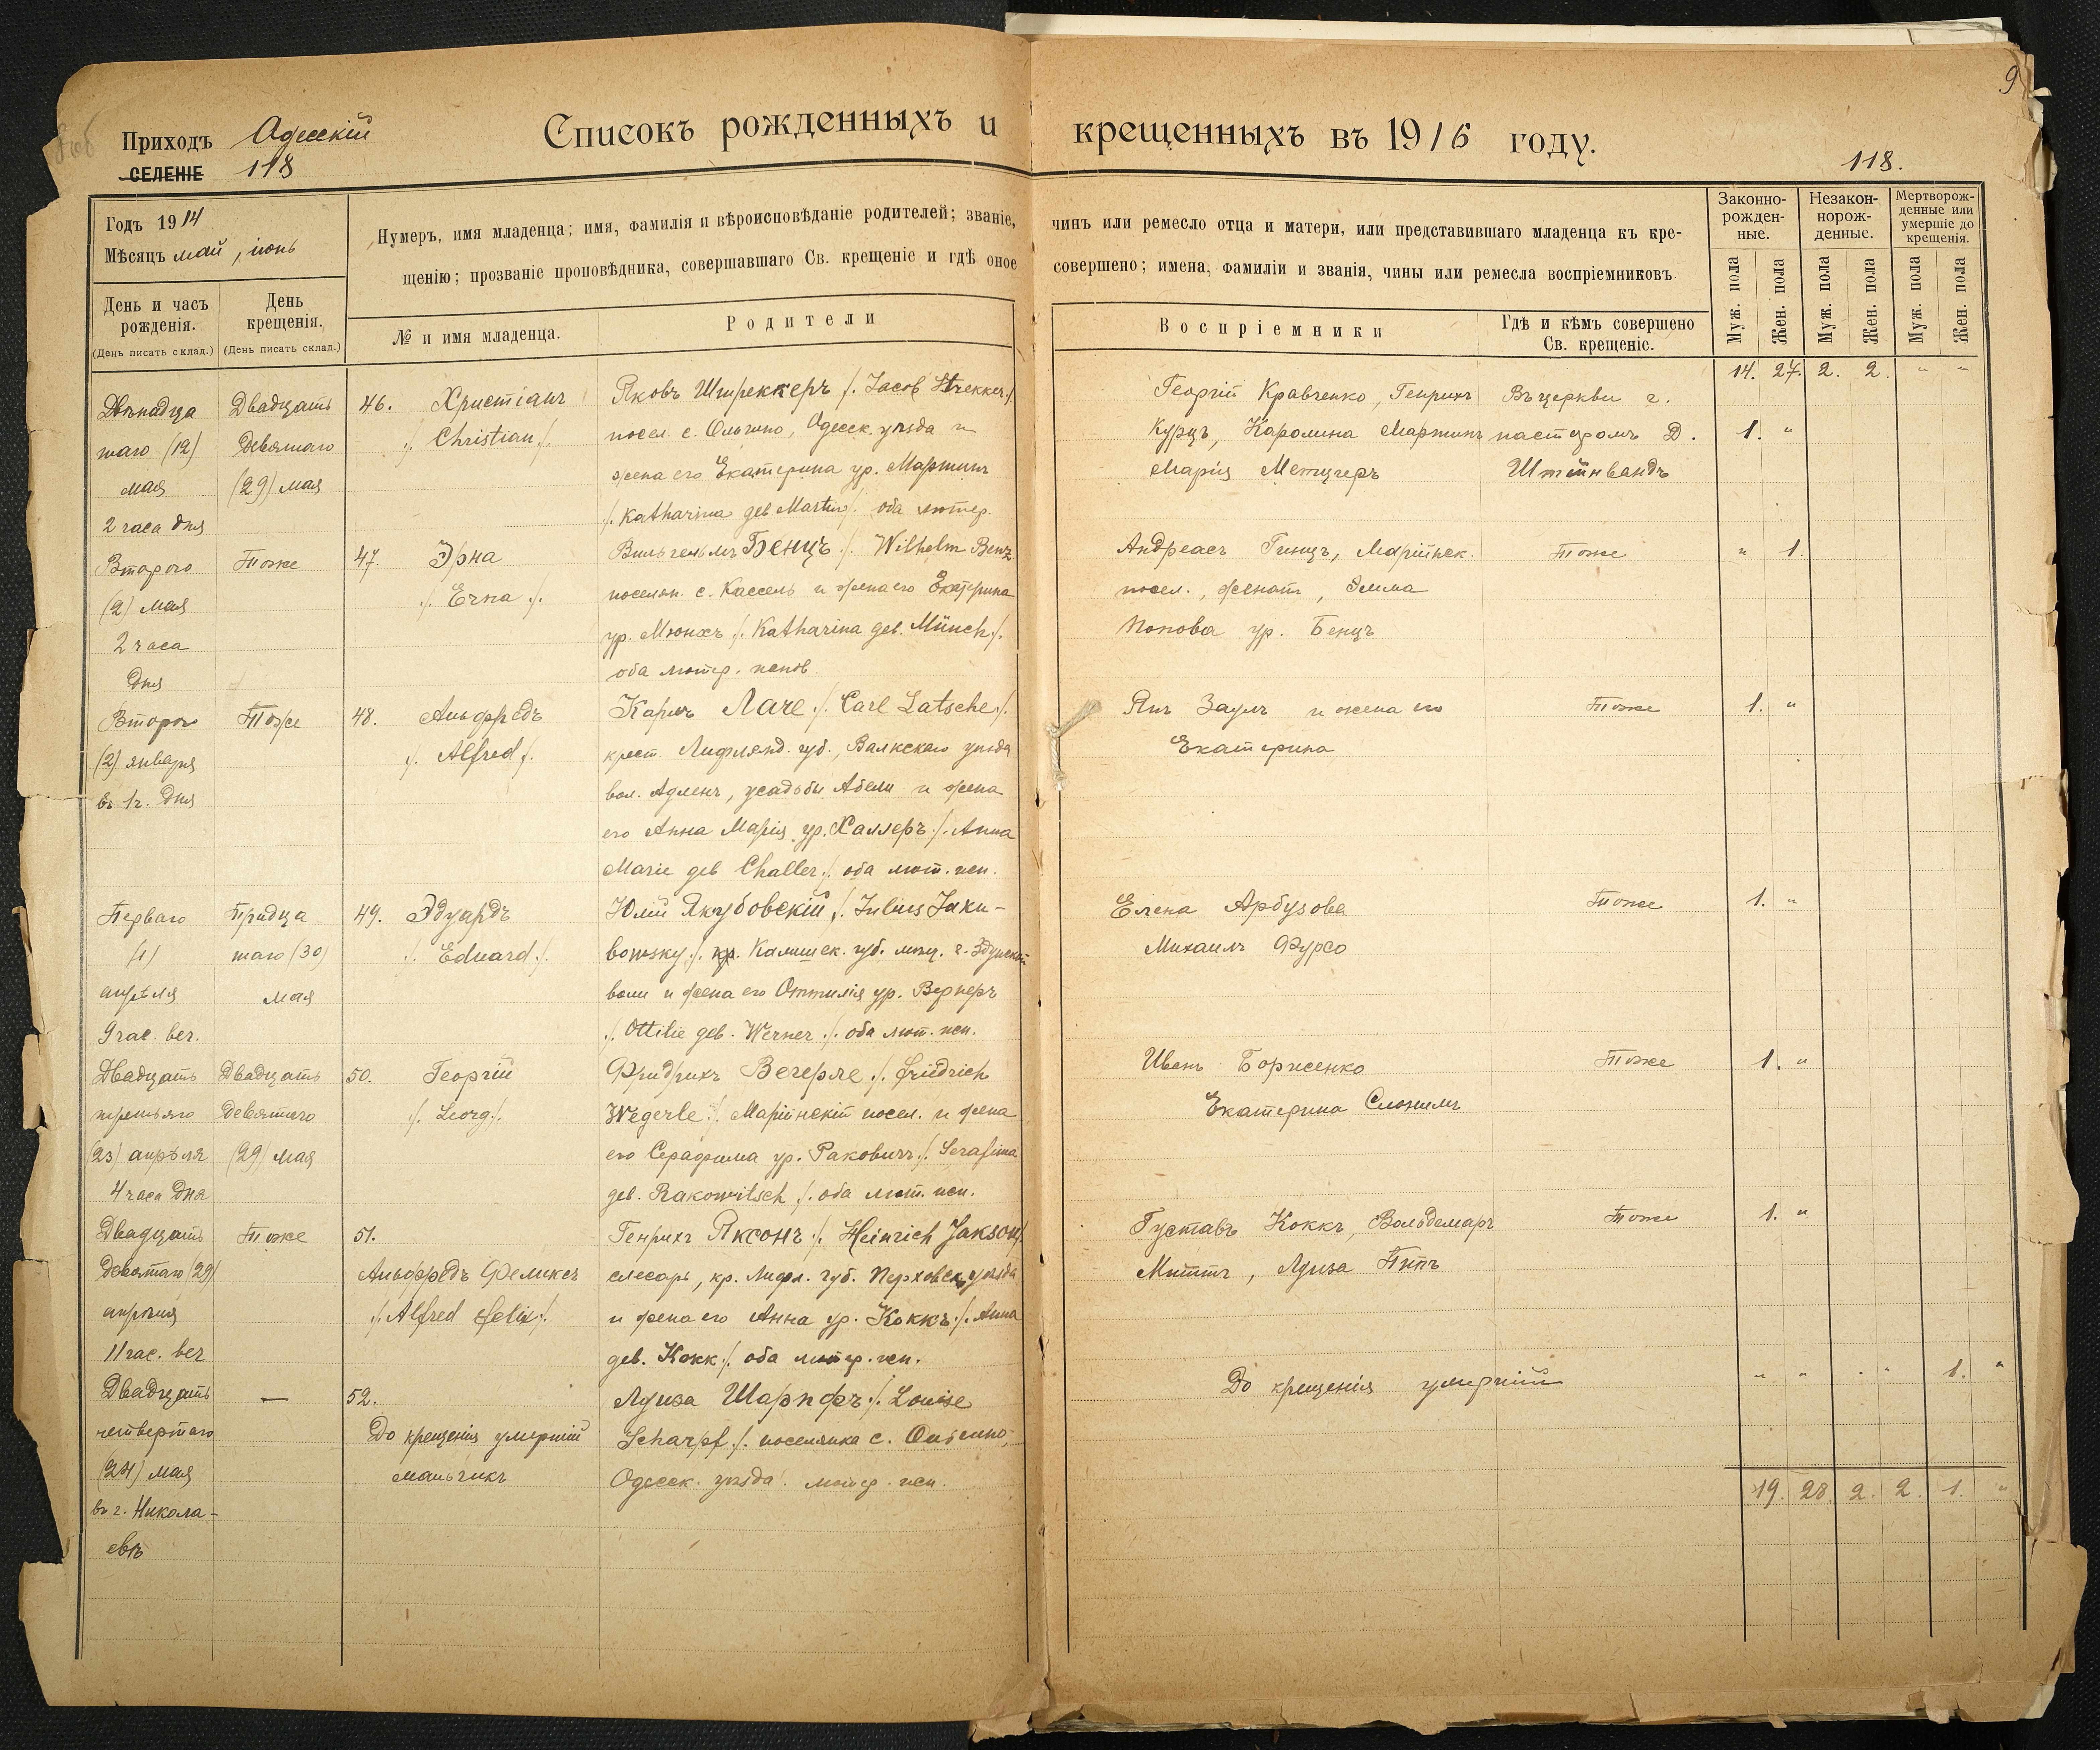 9
Приходъ Одесскій
СЕЛЕНІЕ 118
Списокъ рожденныхъ и крещенныхъ въ 1916 году.
118.
Годъ 1914
Мѣсяцъ май, іюнь
День и часъ рожденія.
(День писать склад.)
День крещенія.
(День писать склад.)
Нумеръ, имя младенца; имя, фамилія и вѣроисповѣданіе родителей; званіе, чинъ или ремесло отца и матери, или представившаго младенца къ кре-
щенію; прозваніе проповѣдника, совершавшаго Св. крещеніе и гдѣ оное совершено; имена, фамиліи и званія, чины или ремесла воспріемниковъ.
№ и имя младенца.
Родители
Воспріемники
Гдѣ и кѣмъ совершено
Св. крещеніе.
Законно-
рожден-
ные.
Незакон-
норож-
денные.
Мертворож-
денные или
умершіе до
крещенія.
Муж. пола
Жен. пола
Муж. пола
Жен. пола
Муж. пола
Жен. пола
14. 27. 2. 2. " "
Двѣнадца
таго (12)
мая
2 часа дня
Двадцать
девятаго
(29) мая
46. Христіанъ
/. Christian ./.
Яковъ Штреккеръ /. Jacob Strekker ./
посел. с. Ольгино, Одесск. уѣзда и
жена его Екатерина ур. Мартинъ
/. Katharina geb Martin /. оба лютер.
Георгій Кравченко, Генрихъ
Курцъ, Каролина Мартинъ
Марія Метцгеръ
Въ церкви г.
пасторомъ Д.
Штейнвандъ
1. "
Второго
(2) мая
2 часа
дня
Тоже
47. Эрна
/. Erna ./.
Вильгельмъ Бенцъ /. Wilhelm Benz
поселян. с. Кассель и жена его Екатерина
ур. Мюнхъ /. Katharina geb. Münch ./.
оба лютер. испов.
Андреасъ Гинцъ, Маріинск.
посел., женат, Эмма
Попова ур. Бенцъ
Тоже
" 1.
Второго
(2) января
въ 1 ч. дня
Тоже
48. Альфредъ
/. Alfred /.
Карлъ Лаче /. Carl Latsche ./.
крест. Лифлянд. губ., Валкскаго уѣзда
вол. Адленъ, усадьбы Абели и жена
его Анна Марія ур. Халлеръ /. Anna
Marie geb Challer /. оба лют. исп.
Янъ Зауль и жена его
Екатерина
Тоже
1. "
Перваго
(1)
апрѣля
9 час. веч.
Тридца
таго (30)
мая
49. Эдуардъ
/. Eduard ./.
Юлій Якубовскій /. Julius Jaku-
bowsky ./. кр. Калишск. губ. мѣщ. г. Здунской
воли и жена его Оттилія ур. Вернеръ
/. Ottilie geb. Werner ./. оба лют. исп.
Елена Арбузова
Михаилъ Фурсо
Тоже
1. "
Двадцать
третьяго
(23) апрѣля
4 часа дня
Двадцать
девятаго
(29) мая
50. Георгій
/. Georg /.
Фридрихъ Вегерле /. Friedrich
Wegerle /. Маріинскій посел. и жена
его Серафима ур. Раковичъ /. Serafima
geb. Rakowitsch /. оба лют. исп.
Иванъ Борисенко
Екатерина
Тоже
1. "
Двадцать
девятаго (29)
апрѣля
11 час. веч
Тоже
51.
Альфредъ Феликсъ
/. Alfred Felix /.
Генрихъ Яксонъ /. Heinrich Jakson /.
слесарь, кр. Лифл. губ. уѣзда
и жена его Анна ур. Коккъ /. Anna
geb. Kokk /. оба лютер. исп.
Густавъ Коккъ, Вольдемаръ
Миттъ, Луиза
Тоже
1. "
Двадцать
четвертаго
(24) мая
въ г. Никола-
евѣ
—
52.
До крещенія умершій
мальчикъ
Луиза Шарпфъ /. Louise
Scharpf ./. поселянка с. Ольгино,
Одесск. уѣзда лютер. исп.
До крещенія умершій
" " " " 1. "
19. 28. 2. 2. 1. "